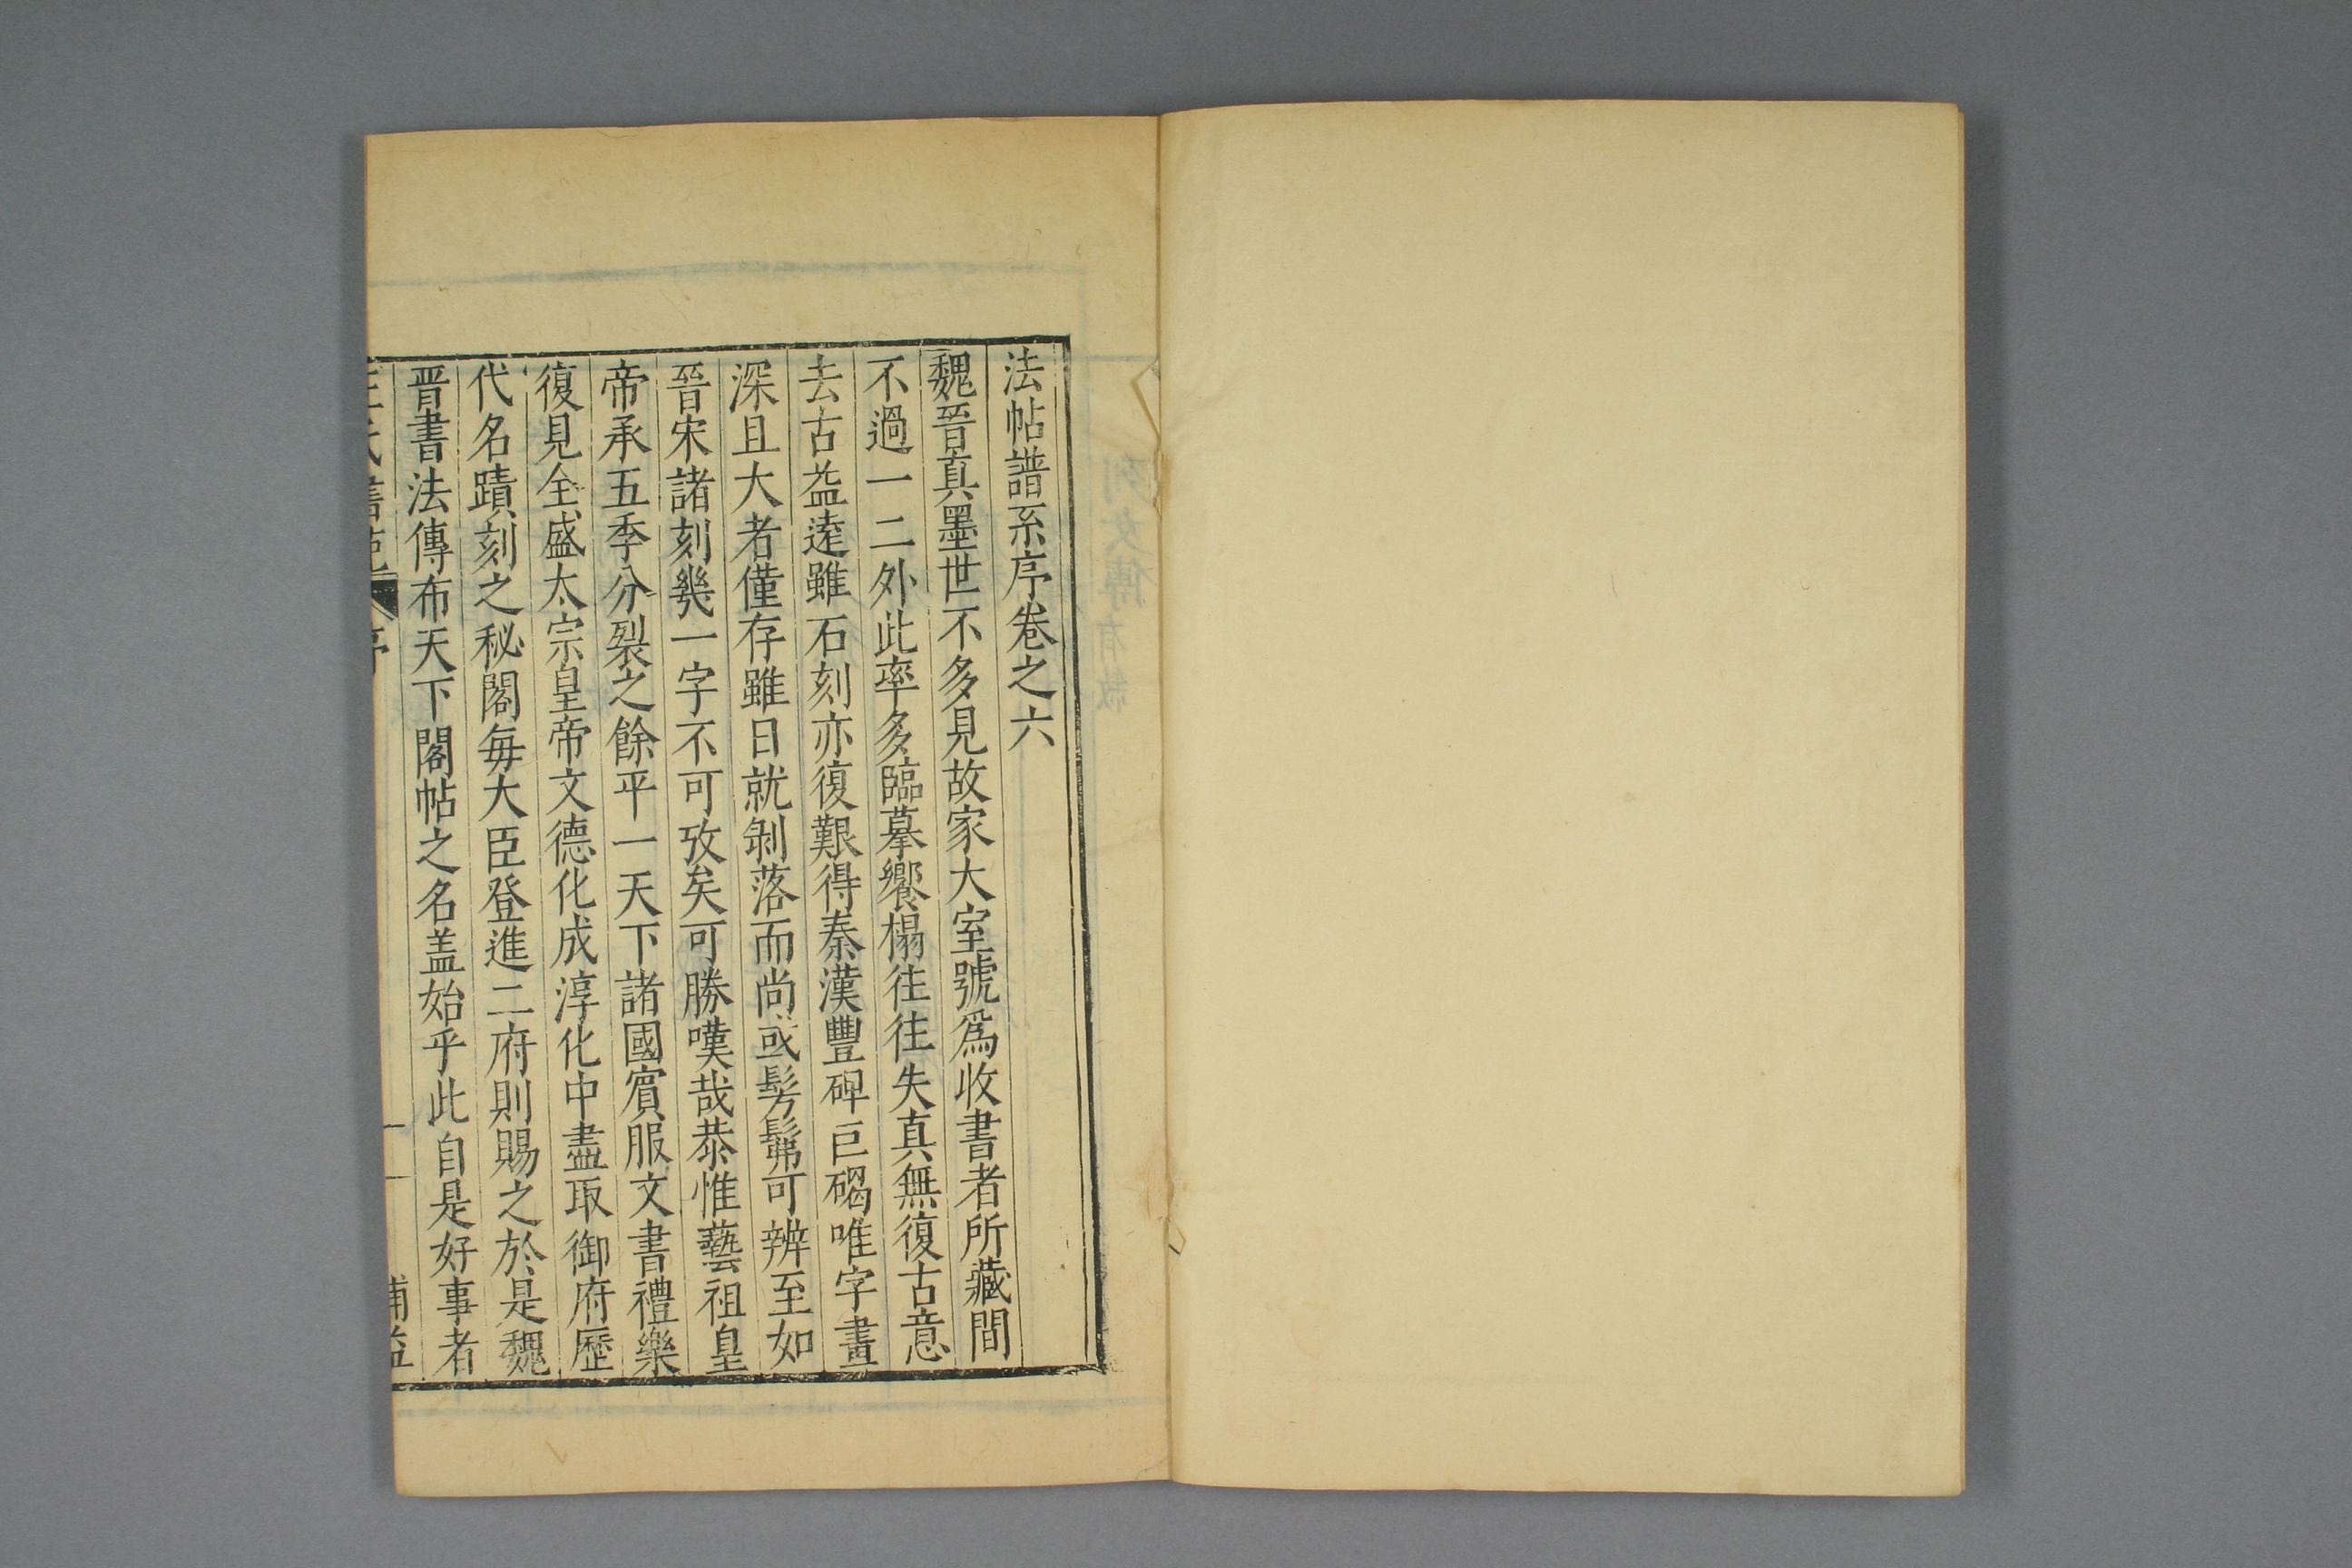 法帖譜系序卷之六
魏晉真墨世不多見故家大室號為收書者所藏間
不過一二外此率多臨摹響榻往往失真無復古意
去古益逺雖石刻亦復艱得秦漢豐碑巨碣唯字畫
深且大者僅存雖日就剝落而尚或髣髴可辨至如
晉宋諸刻幾一字不可攷矣可勝嘆哉恭惟藝祖皇
帝承五季分裂之餘平一天下諸國賓服文書禮樂
復見全盛太宗皇帝文德化成淳化中盡取御府歷
代名蹟刻之秘閣每大臣登進二府則賜之於是魏
晋書法傳布天下閣帖之名盖始乎此自是好事者
王氏書苑 序